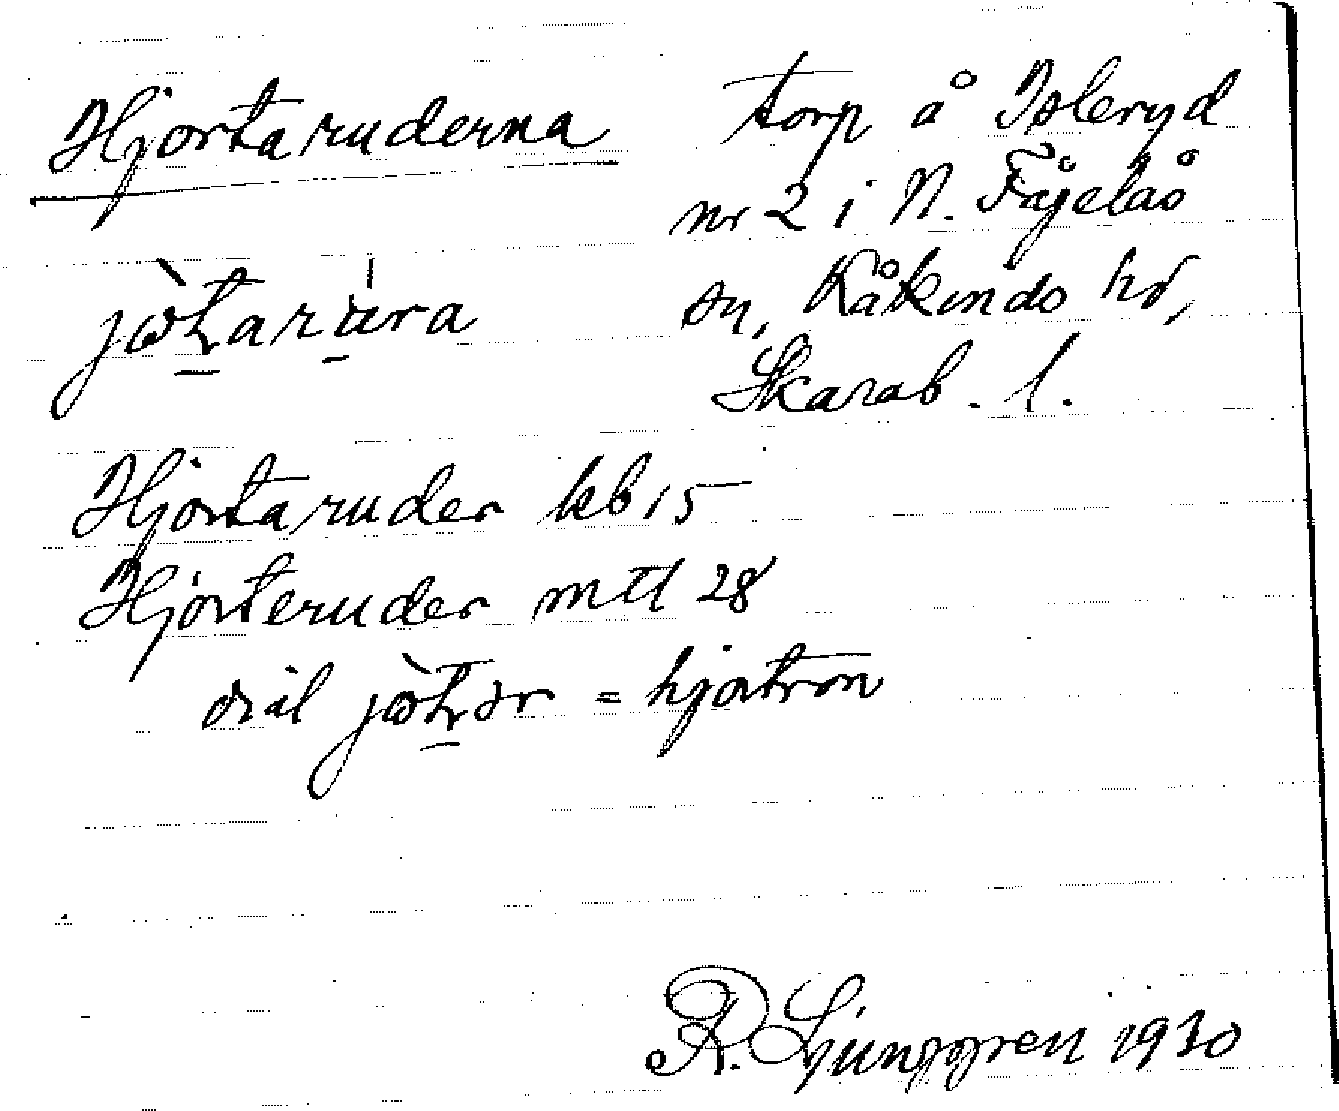 Hjortaruderna
torp å Isleryd
nr 2 i N. Fågelås
sn, Kåkinds hd,
Skarab. l.
Hjortaruder kb 15
Hjorteruder mtl 28
dial = hjortron
R. Ljunggren 1930